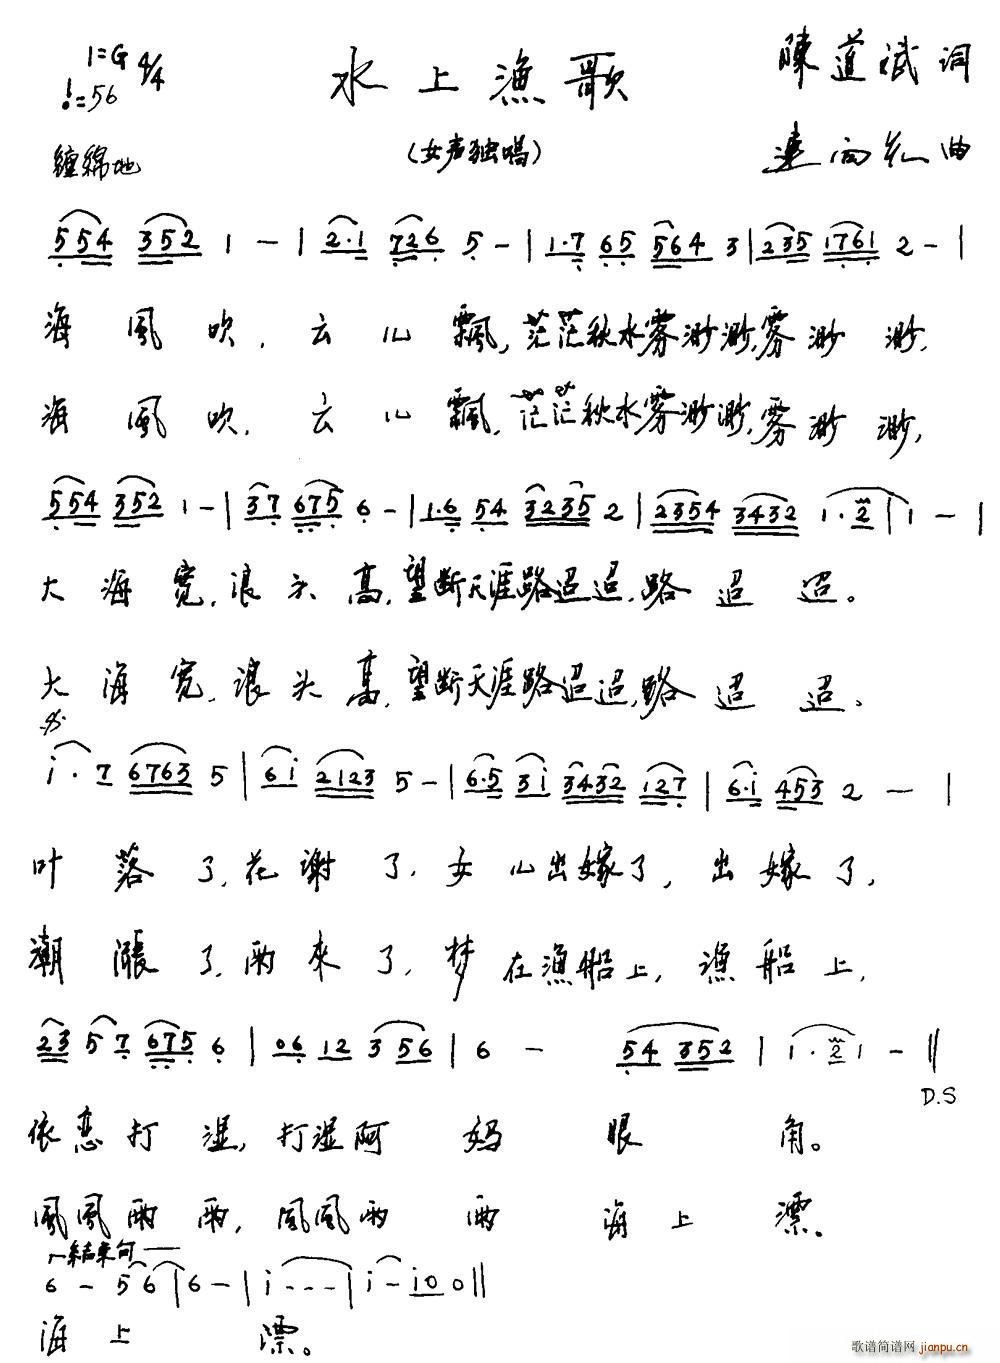 1=G 4/4 水上漁歌 陳道斌 词
♩=56
缠綿地 (女声独唱) 连向先 曲
554 352 1 - | 2·1 726 5 - | 1·7 65 564 3 | 235 1761 2 - |
海風吹,云儿飄,茫茫秋水雾渺渺,雾渺渺,
海風吹,云儿飄,茫茫秋水雾渺渺,雾渺渺,
554 352 1 - | 37 675 6 - | 1·6 54 3235 2 | 2354 3432 1·2 | 1 - |
大海宽,浪头高,望断天涯路迢迢,路迢迢。
大海宽,浪头高,望断天涯路迢迢,路迢迢。
i·7 6763 5 | 6i 2123 5 - | 6·5 3i 3432 127 | 6·i 453 2 - |
叶落了,花谢了,女儿出嫁了,出嫁了,
潮漲了,雨來了,梦在漁船上,漁船上,
23 57 675 6 | 06 12 3 56 | 6 - 54 352 | 1·2 1 - ||
D.S
依恋打湿,打湿阿妈眼角。
風風雨雨,風風雨雨海上漂。
結束句
6 - 56 | 6 - | i - - - | i - i00 ||
海上漂。
歌谱简谱网 jianpu.cn